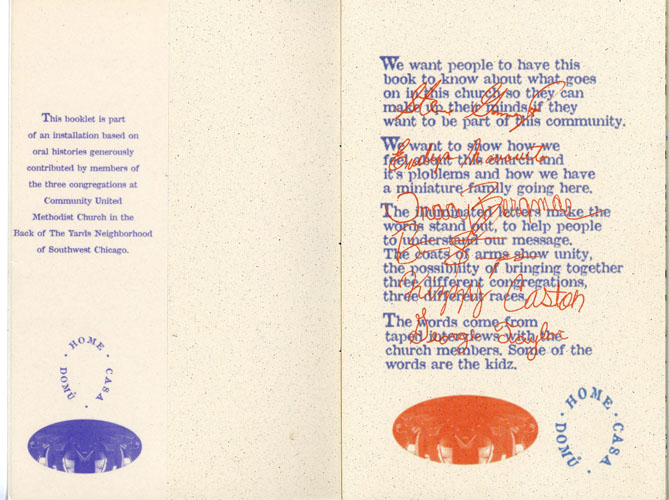 This booklet is part
of an installation based on
oral histories generously
contributed by members of
the three congregations at
Community United
Methodist Church in the
Back of The Yards Neighborhood
of Southwest Chicago.
· HOME · CASA · DOMŮ
We want people to have this
book to know about what goes
on in this church so they can
make up their minds if they
want to be part of this community.
We want to show how we
feel about this church and
it's ploblems and how we have
a miniature family going here.
The illuminated letters make the
words stand out, to help people
to understand our message.
The coats of arms show unity,
the possibility of bringing together
three different congregations,
three different races.
The words come from
taped interviews with the
church members. Some of the
words are the kidz.
Caston
George
· HOME · CASA · DOMŮ